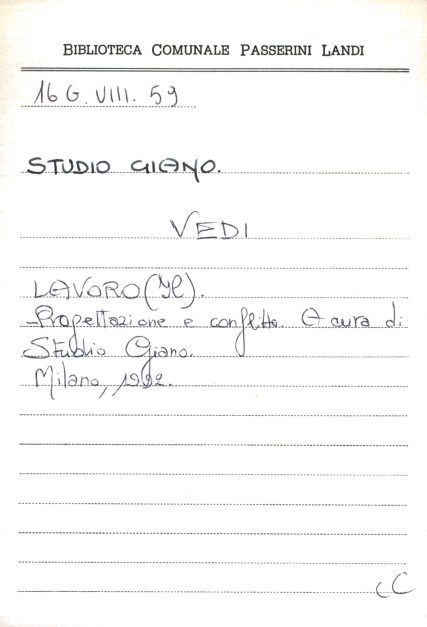 BIBLIOTECA COMUNALE PASSERINI LANDI
16 G. VIII. 59
STUDIO GIANO.
VEDI
LAVORO (Il).
Progettazione e conflitto. A cura di
Studio Giano.
Milano, 1992.
CC